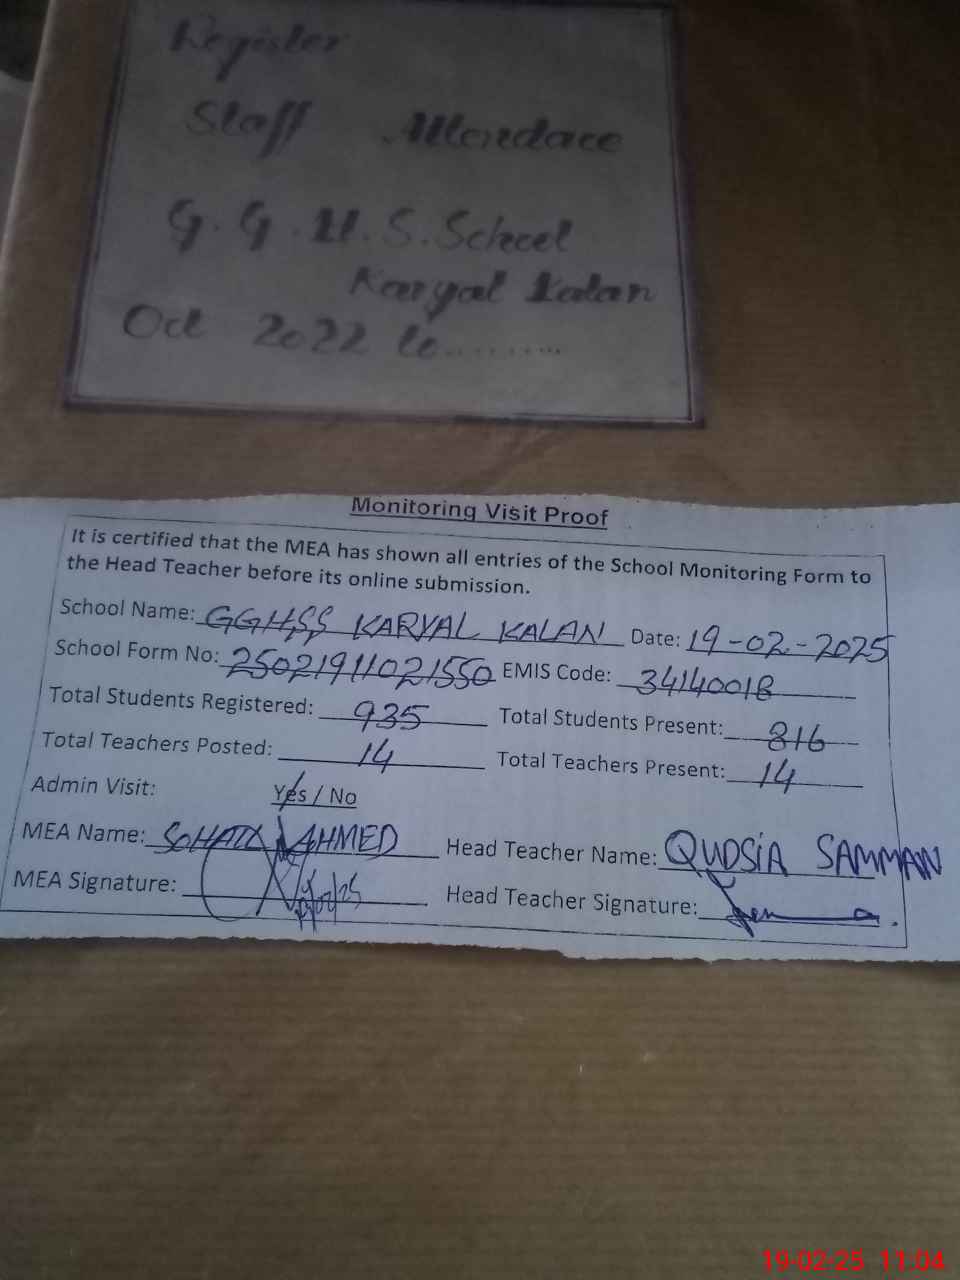 Register
Staff Attendace
G.G.H.S.School
Karyal Kalan
Oct 2022 to.........
Monitoring Visit Proof
It is certified that the MEA has shown all entries of the School Monitoring Form to
the Head Teacher before its online submission.
School Name: GGHSS KARYAL KALAN Date: 19-02-2025
School Form No: 25021911021550 EMIS Code: 34140018
Total Students Registered: 935 Total Students Present: 816
Total Teachers Posted: 14 Total Teachers Present: 14
Admin Visit: Yes / No
MEA Name: SOHAIL AHMED Head Teacher Name: QUDSIA SAMMAN
MEA Signature: Head Teacher Signature:
19-02-25 11:04